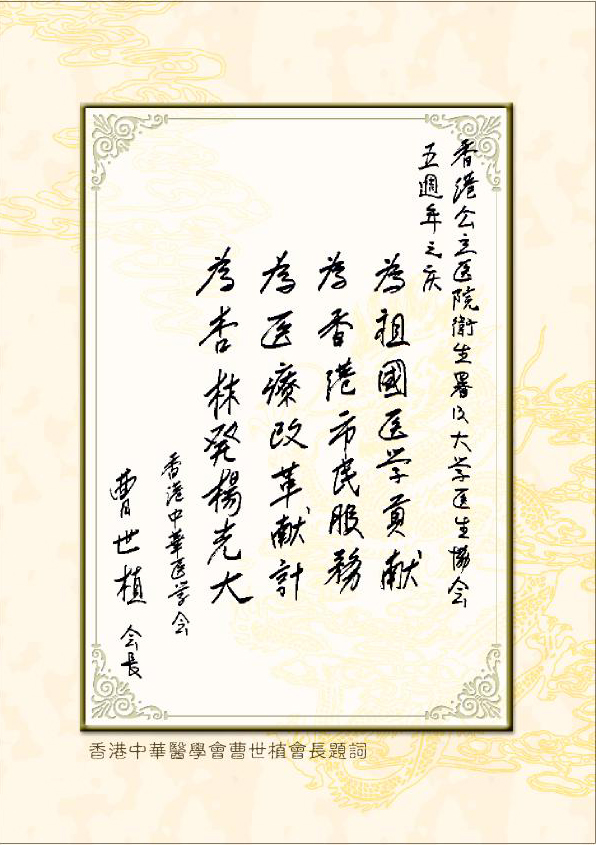 香港公立医院衛生署及大学医生協会
五週年之庆
為祖國医学貢献
為香港市民服務
為医療改革献計
為杏林発楊光大
香港中華医学会
曹世植会長
香港中華醫學會曹世植會長題詞